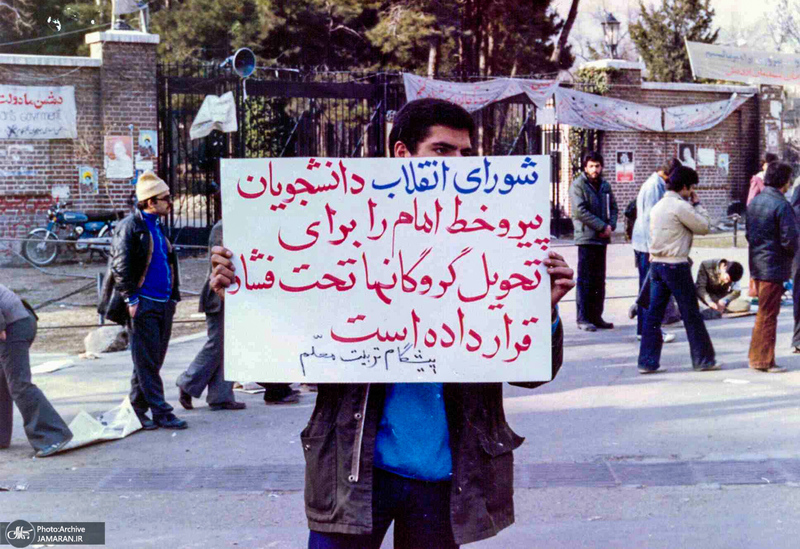 دشمن ما دولت
شورای انقلاب دانشجویان
پیرو خط امام را برای
تحویل گروگانها تحت فشار
قرار داده است
پیشگام تربیت معلّم
Photo:Archive
JAMARAN.IR